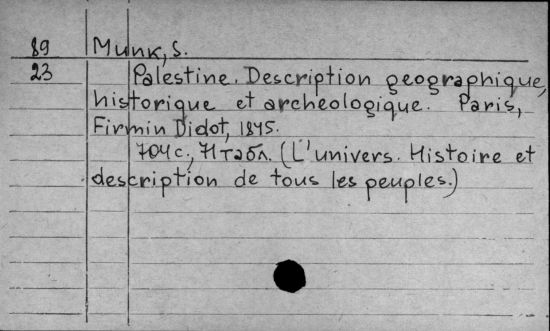 89 Munk, S.
23 Palestine. Description geographique,
historique et archeologique. Paris,
Firmin Didot, 1845.
704 с., 71 табл. (L'univers. Histoire et
description de tous les peuples.)